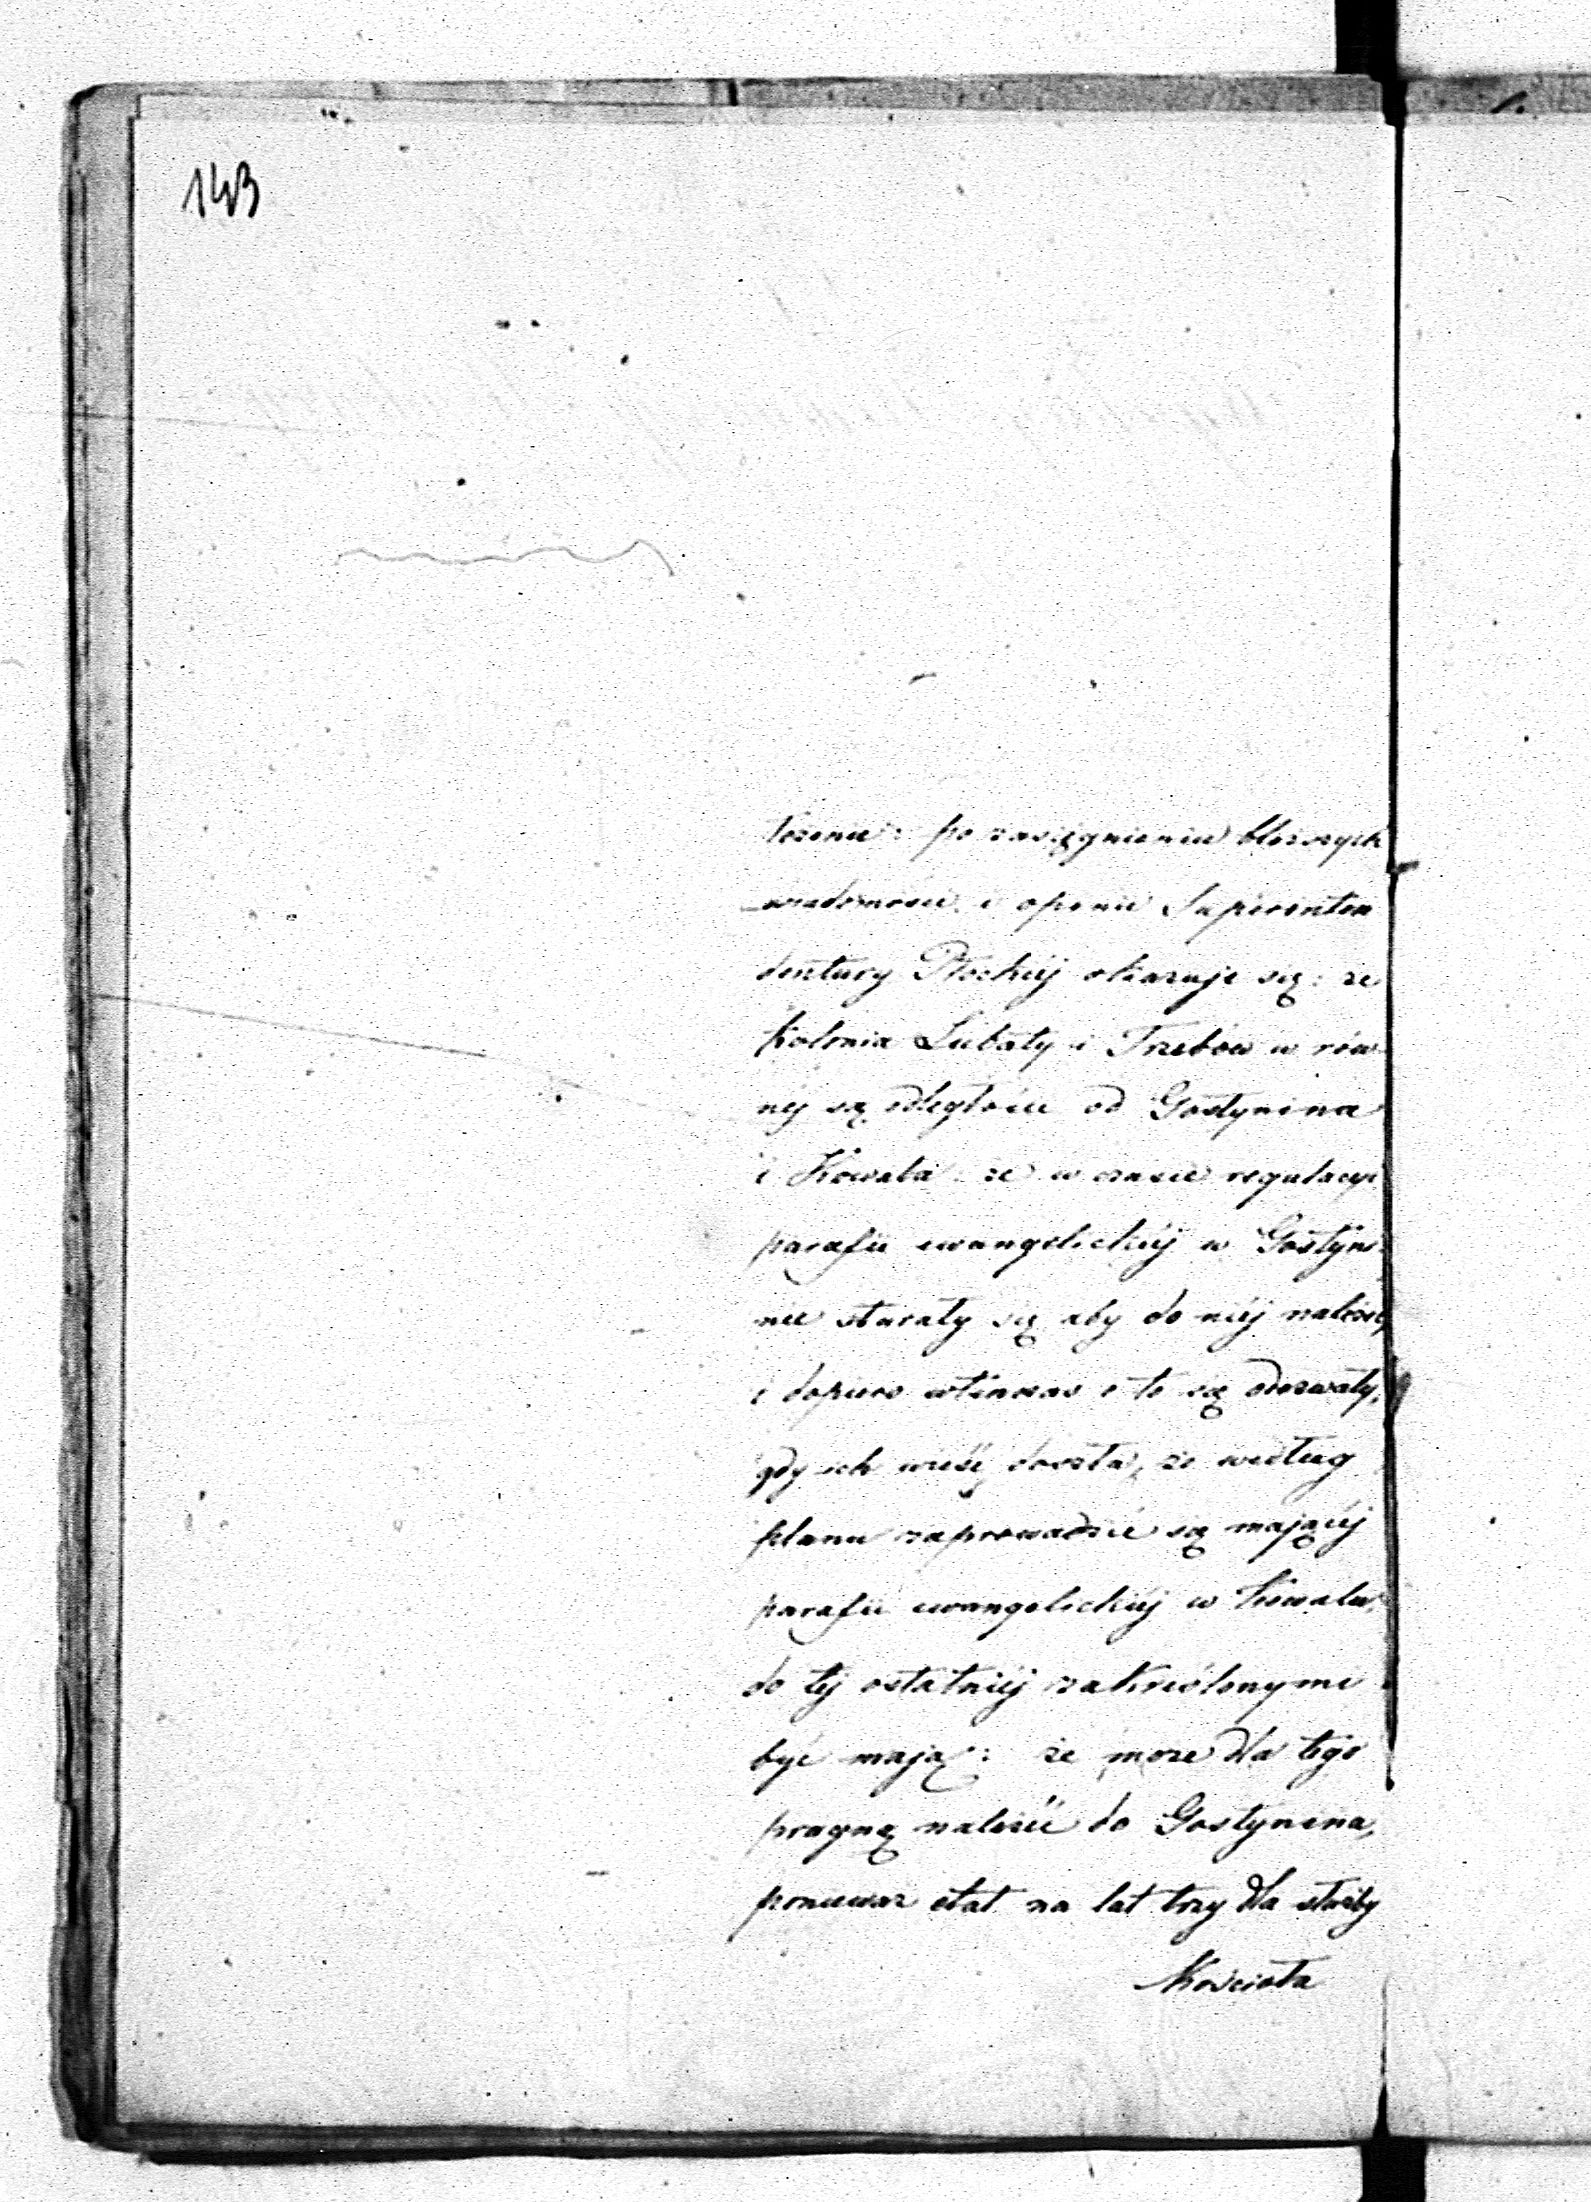 143
łożenie: po zasięgnieniu bliższych
wiadomości i opinii Superinten
dentury Płockiéj okazuje się: że
kolonia Lubaty i Trzebów w rów
néj są odległości od Gostynina
i Kowala że w czasie regulacyi
parafii ewangelickiéj w Gostyni
nie starały się aby do niéj należeć,
i dopiero wtenczas o to się odezwały,
gdy ich wieść doszła, że według
planu zaprowadzić się mającéj
parafii ewangelickiéj w Kowalu,
do téj ostatniéj zakreślonymi
być mają: że może dla tego
pragną należéć do Gostynina,
ponieważ etat na lat trzy dla służby
Kościoła